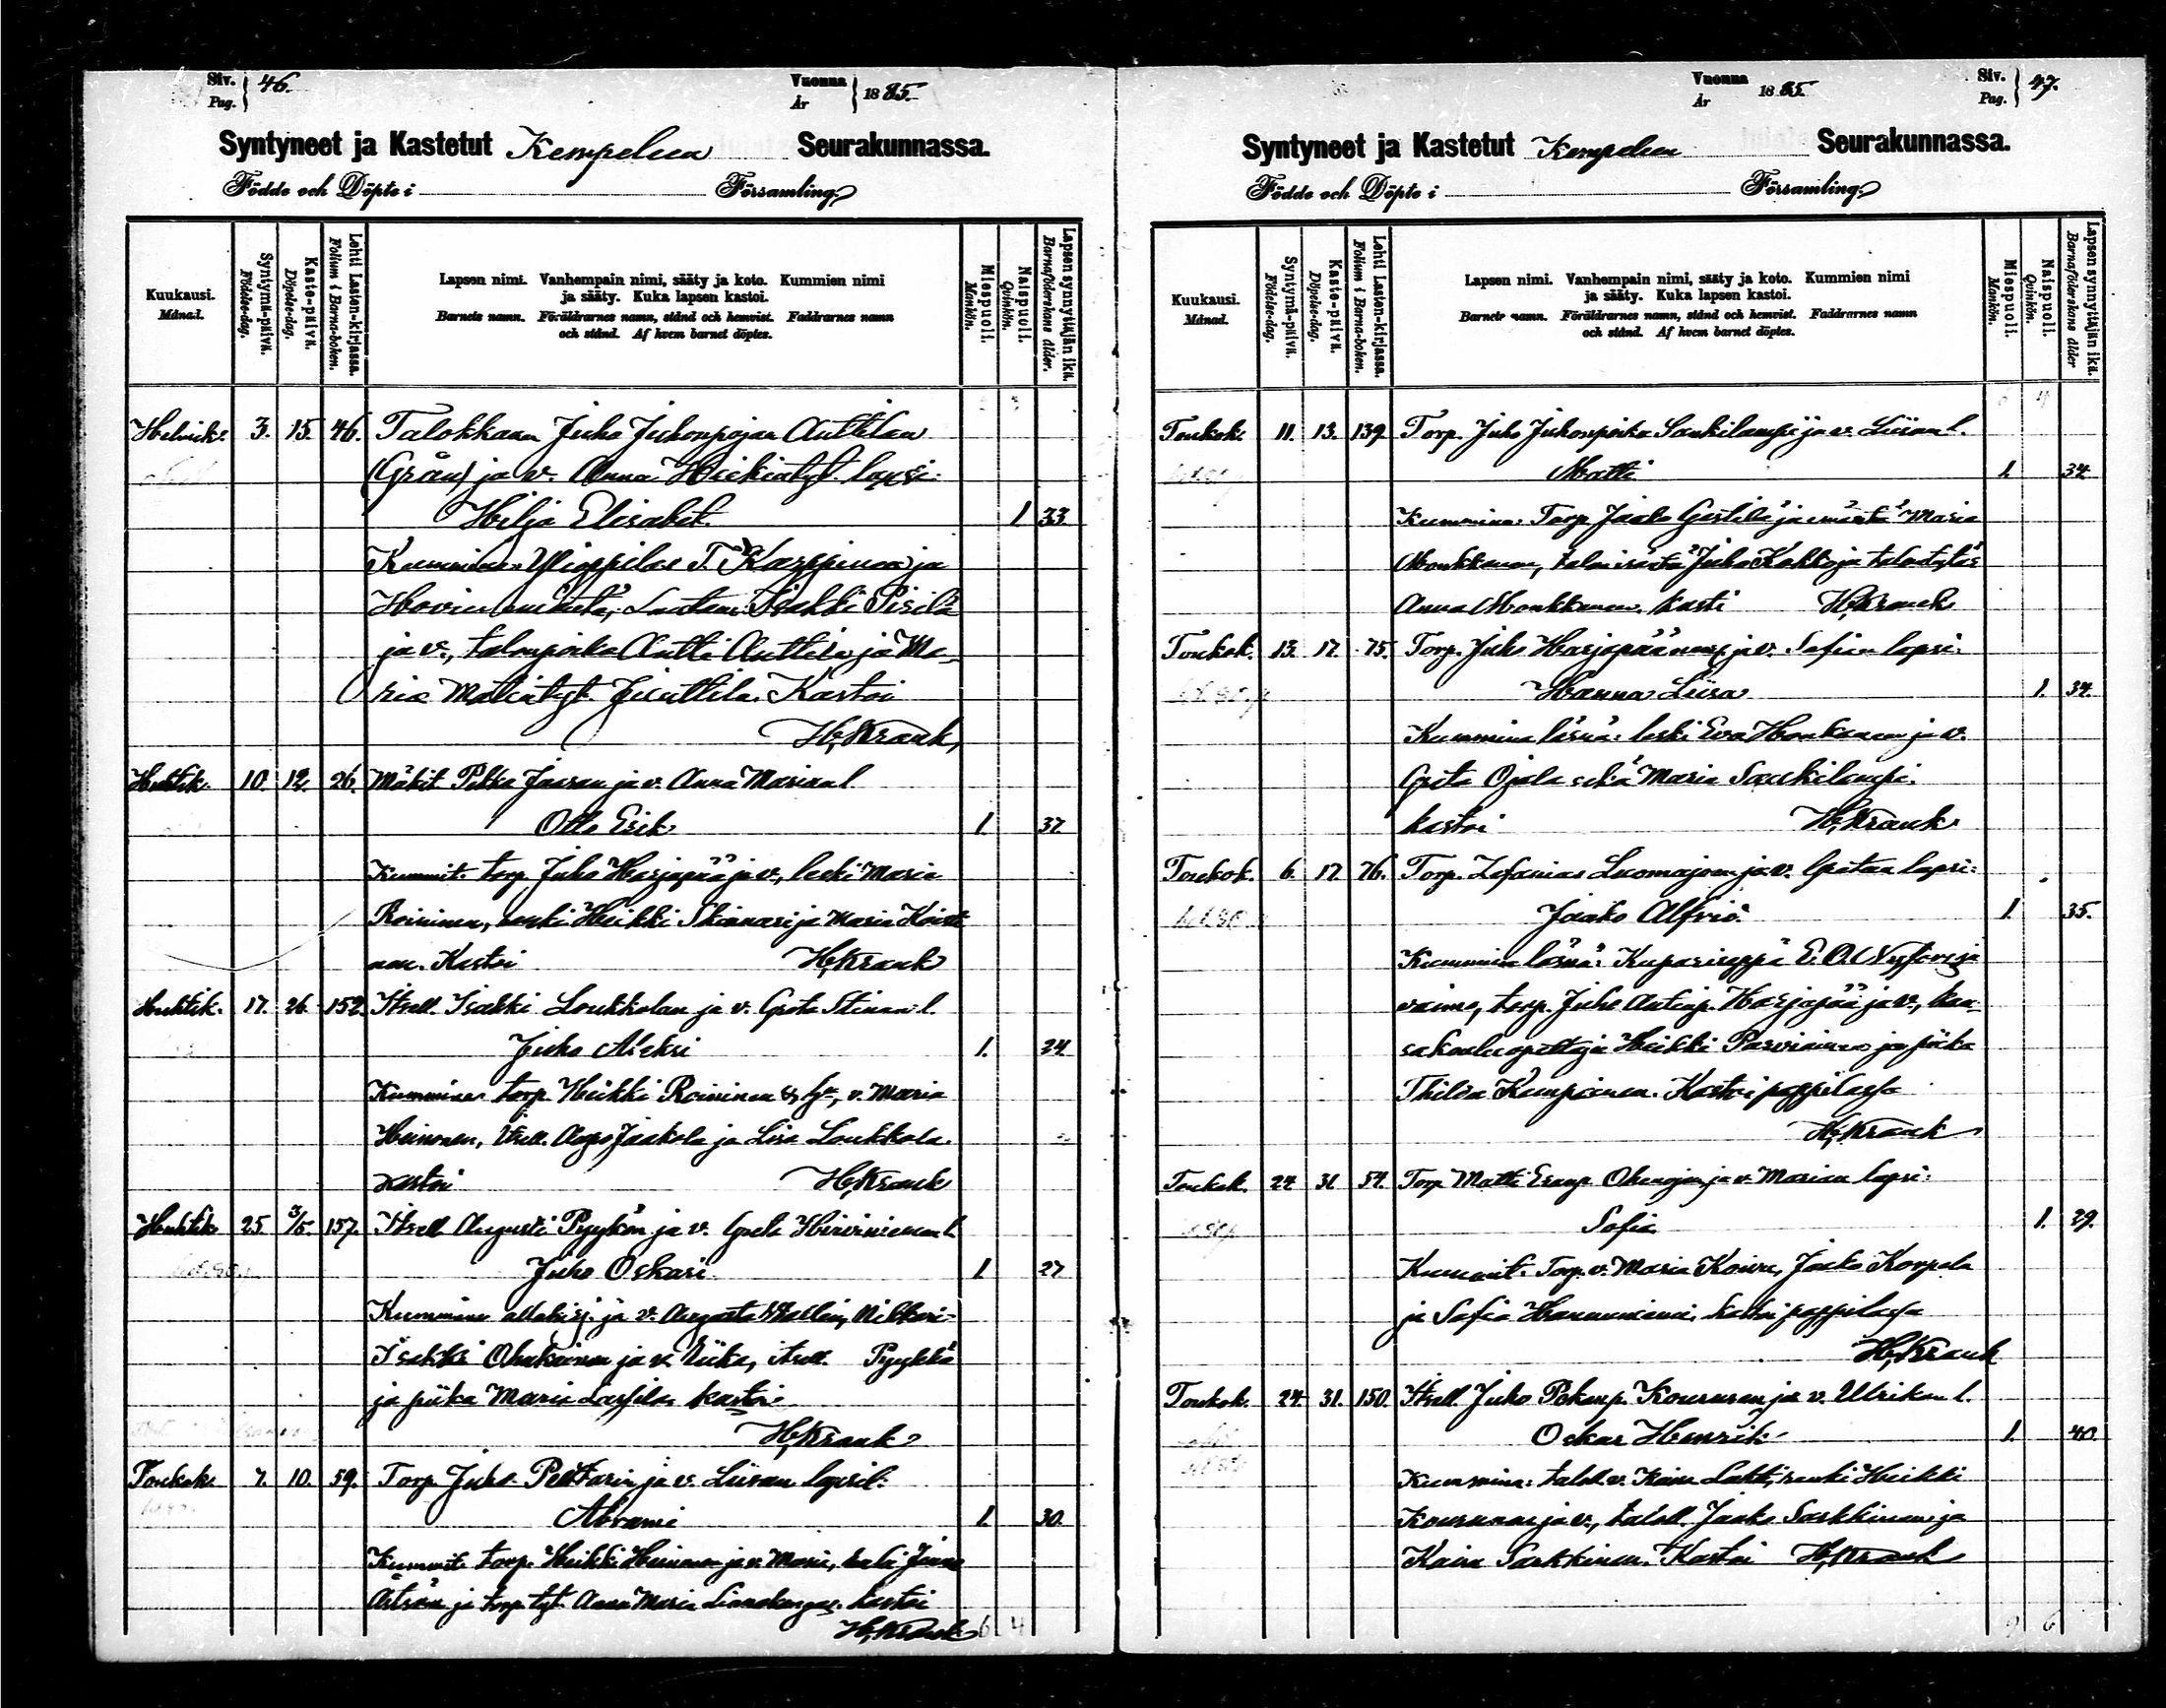 Siv. Pag. 46.
Vuonna År 1885.
Syntyneet ja Kastetut Kempeleen Seurakunnassa.
Födde och Döpte i Församling.
Kuukausi. Månad.
Syntymä-päivä. Födelse-dag.
Kaste-päivä. Döpelse-dag.
Lehti Lasten-kirjassa. Folium i Barna-boken.
Lapsen nimi. Vanhempain nimi, sääty ja koto. Kummien nimi
ja sääty. Kuka lapsen kastoi.
Barnets namn. Föräldrarnes namn, stånd och hemvist. Faddrarnes namn
och stånd. Af hvem barnet döptes.
Miespuoli. Mankön.
Naispuoli. Qvinkön.
Lapsen synnyttäjän ikä. Barnaföderskans ålder.
Helmik. 3. 15. 46. Talokkaan Juho Juhonpojan Anttilan
(Grån) ja v. Anna Heikintyt. lapsi:
Hilja Elisabet. 1 33
Kummina: Ylioppilas T. Karppinen ja
Hovin emäntä, Lautam. Isakki Pisilä
ja v., talonpoika Antti Anttila ja Ma-
ria Matintyt. Junttila. Kastoi
H. Krank,
Huhtik. 10 12 26. Mäkit. Pekka Jaaran ja v. Anna Marian l.
Otto Erik 1. 37
Kummit. torp. Juho Harjapää ja v., leski Maria
Roininen, renki Heikki Skinnari ja Maria
nen. Kastoi H. Krank
Huhtik. 17. 26. 152. Itsell. Isakki Loukkolan ja v. Greta Stinan l.
Juho Aleksi 1. 24
Kummina torp. Heikki Roininen v. Maria
Heinonen, Itsell. Jaakola ja Lisa Loukkola.
Kastoi H. Krank
Huhtik. 25. 3/5. 157. Itsell. Augusti Pyykön ja v. Greta Hirviniemen l.
Juho Oskari. 1 27
Kummina ja v. Augusta Wallin, Nikkari
Isakki ja v. Liika, itsell. Pyykkö
ja piika Maria kastoi
H. Krank
Toukok. 7. 10. 59. Torp. Juho Petterin ja v. Liisan lapsi:
Abrami 1. 30.
Kummit torp. Heikki Heinonen ja v. Maria,
ja torp. tyt. Anna Maria Linnakangas. kastoi
H. Krank 6 4
Siv. Pag. 47.
Vuonna År 1885.
Syntyneet ja Kastetut Kempeleen Seurakunnassa.
Födde och Döpte i Församling.
Kuukausi. Månad.
Syntymä-päivä. Födelse-dag.
Kaste-päivä. Döpelse-dag.
Lehti Lasten-kirjassa. Folium i Barna-boken.
Lapsen nimi. Vanhempain nimi, sääty ja koto. Kummien nimi
ja sääty. Kuka lapsen kastoi.
Barnets namn. Föräldrarnes namn, stånd och hemvist. Faddrarnes namn
och stånd. Af hvem barnet döptes.
Miespuoli. Mankön.
Naispuoli. Qvinkön.
Lapsen synnyttäjän ikä. Barnaföderskans ålder
6 4
Toukok. 11. 13. 139. Torp. Juho Juhonpoika Sankilampi ja v. Liisan l.
Matti 1. 34
Kummina: Torp. Jaako Gestilä ja emäntä Maria
Monkkanen, talon isäntä Juho Kokko ja talontytär
Anna Monkkanen. Kasti H. Krank
Toukok. 13. 17. 75. Torp. Juho Harjapään ja v. Sofian lapsi:
Hanna Liisa 1. 34.
Kummina läsnä: leski Eva Honkanen ja v.
Greta Ojala sekä Maria Sankilampi.
kastoi H. Krank
Toukok. 6. 17. 76. Torp. Zefanias Luomajoen ja v. Gretan lapsi:
Jaako Alfrid. 1. 35.
Kummina läsnä: Kupariseppä E. O. ja
vaimo, torp. Juho Antinp. Harjapää ja v., kan-
sakoulu opettaja Heikki Parviainen ja piika
Thilda Kempainen. Kastoi pappilassa
H. Krank
Toukok. 24 31. 54. Torp. Matti Eranp. ja v. Marian lapsi:
Sofia 1. 29.
Kummit. Torp. v. Maria Koivu, Jaako Korpela
ja Sofia Hannuniemi. kastoi pappilassa
H. Krank
Toukok. 24. 31. 150. Itsell. Juho Pekanp. Kourusen ja v. Ulrikan l.
Oskar Henrik 1. 40
Kummina: talol. v. Kaisa Lahti, renki Heikki
Kourunen ja v., taloll. Jaako Sarkkinen ja
Kaisa Sarkkinen. Kastoi H. Krank
9 6